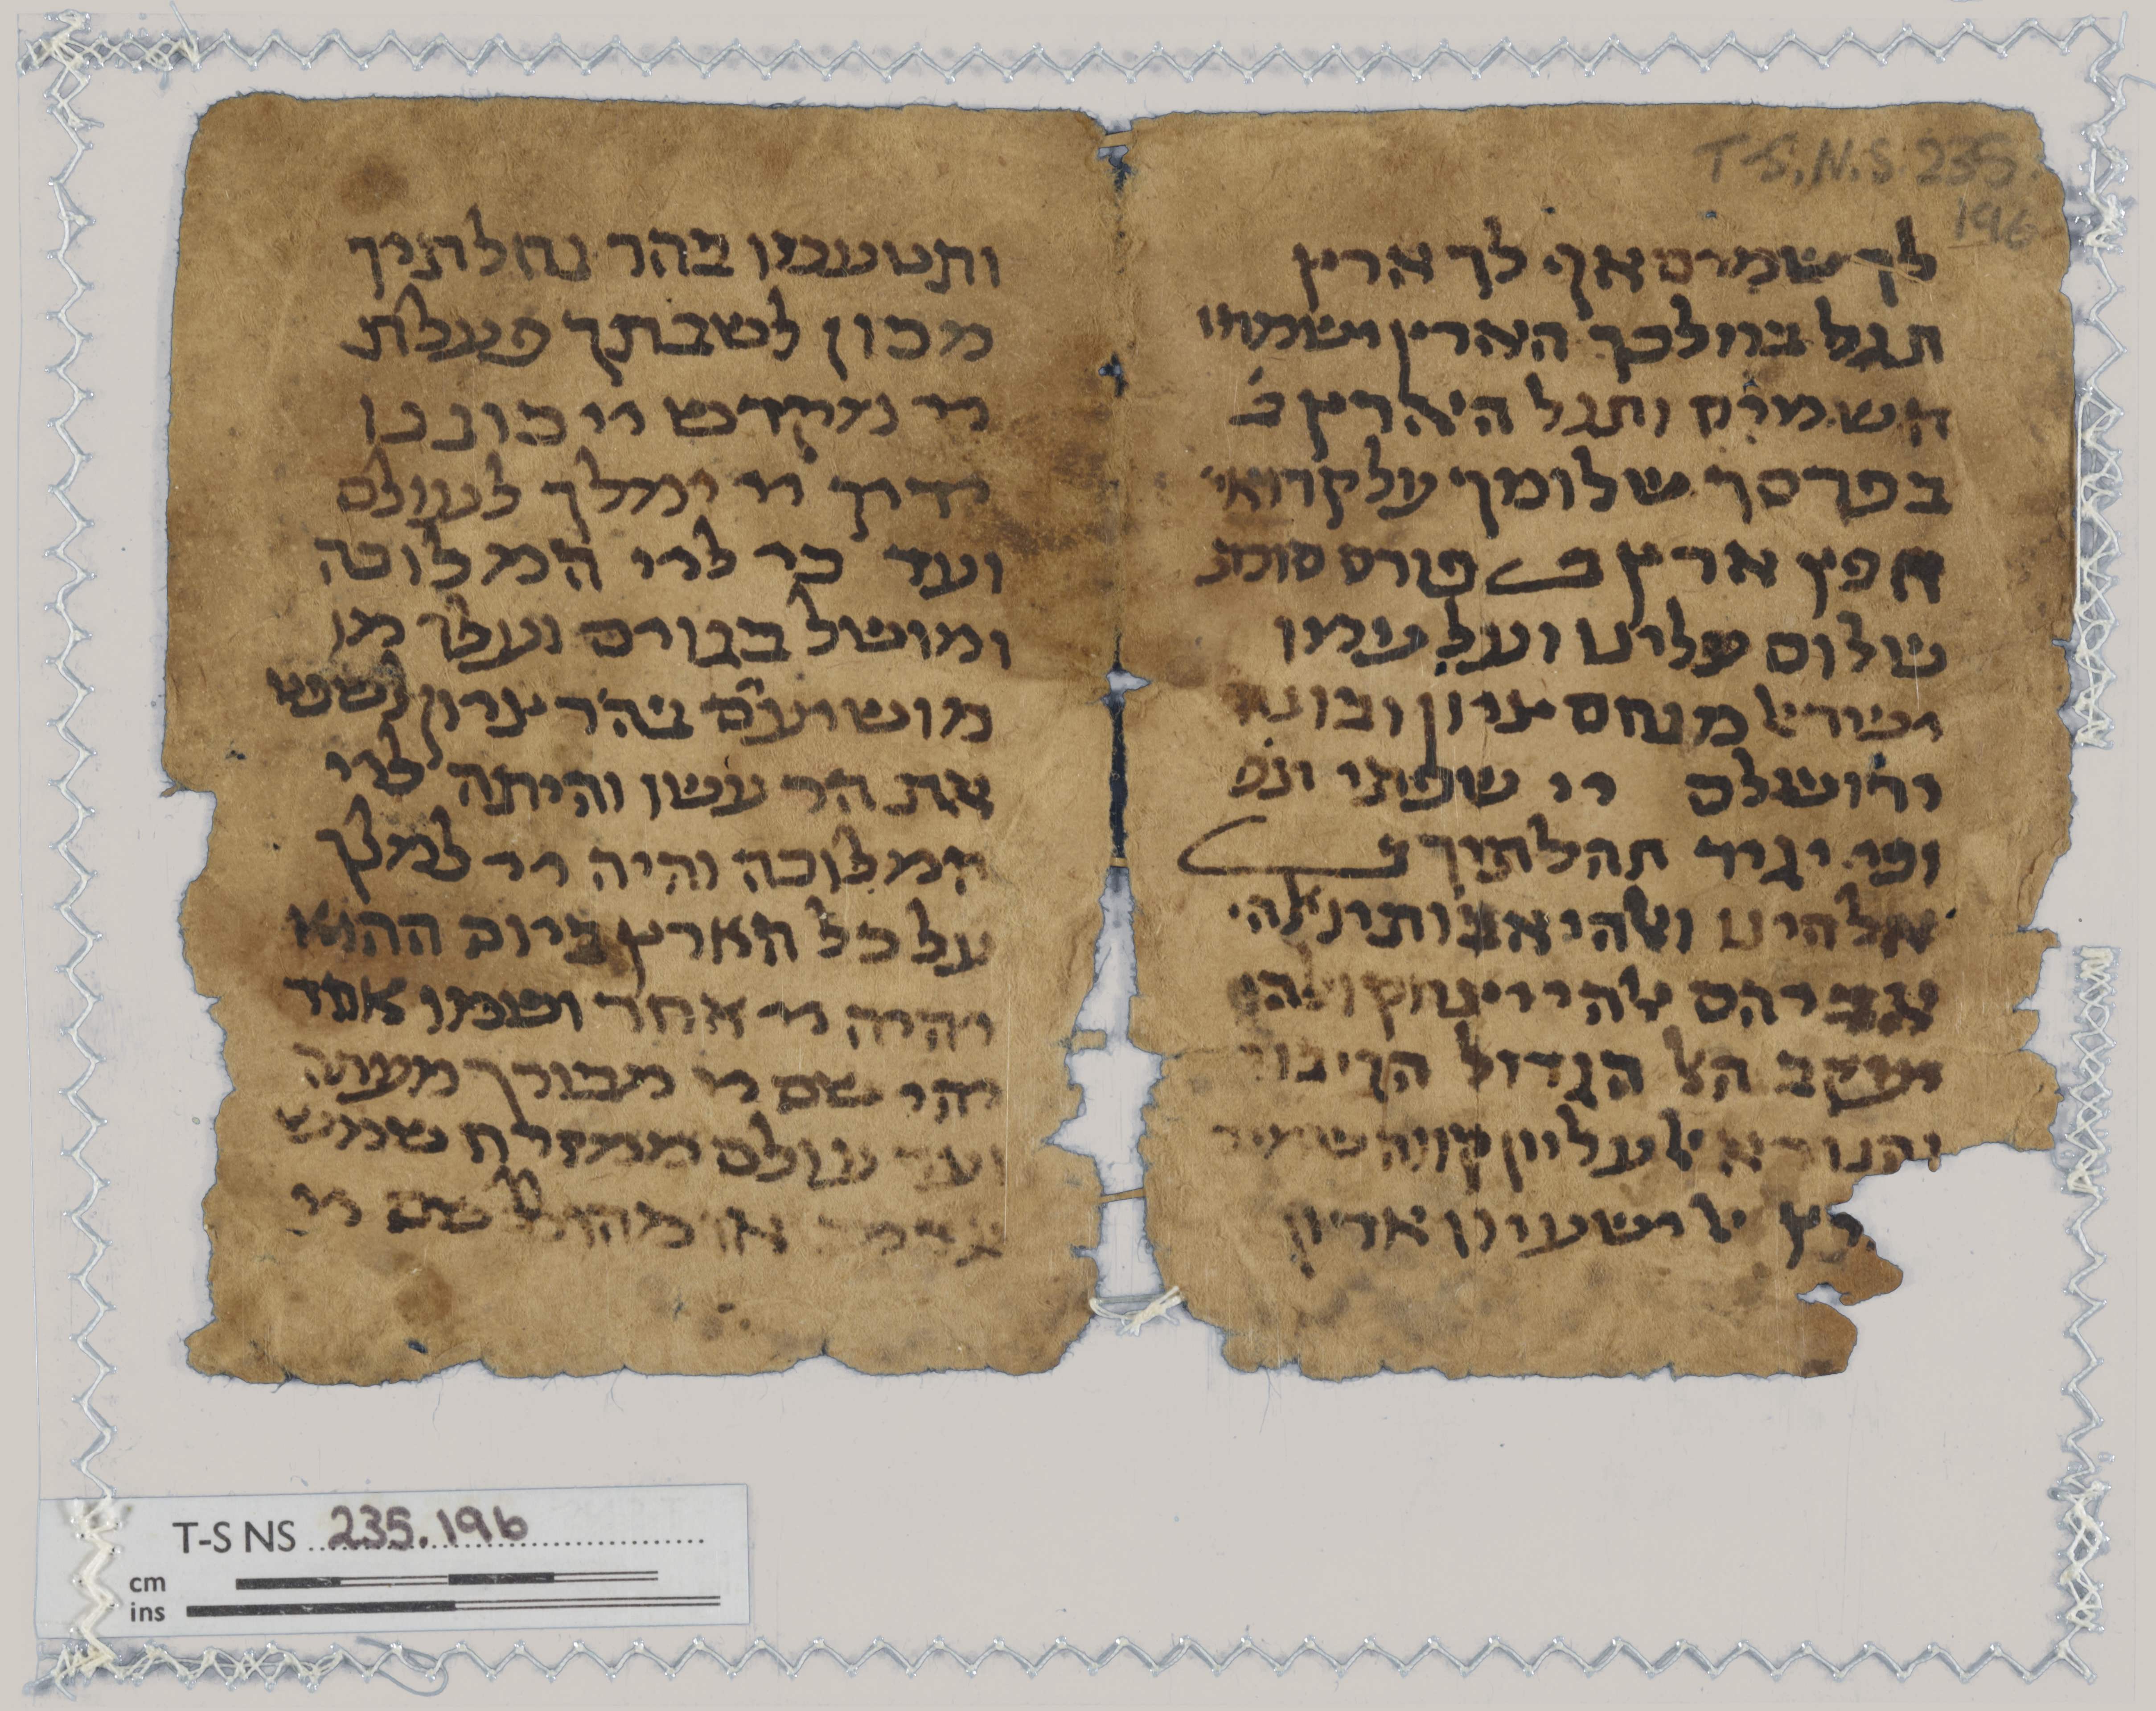 T-S.N.S 235.
196
לך שמים אף לך ארץ
תגל במולכך הארץ וישמחו
השמים ותגל היארץ כ
בפרסך שלומך על קרואי
חפץ ארץ ב פורס סוכת
שלום עלינו ועל עימו
ישראל מנחם ציון ובונה
ירושלם יי שפתי
ופי יגיד תהלתיך ב
אלהינו ואלהי אבותינו אלהי
אברהם אלהי יצחק ואלהי
יעקב האל הגדול הגיבור
והנורא אל עליון קונה שמים
ישעינו
ותטעמו בהר נחלתיך
מכון לשבתך פעלת
יי מקדש יי כוננו
ידיך יי ימלך לעולם
ועד כי ליי המלוכה
ומושל בגוים ועלו מו
מושיעים בהר ציון לשפט
את הר עשו והיתה ליי
המלוכה והיה יי למלך
על כל הארץ ביום ההוא
יהיה יי אחד ושמו אחד
יהי שם יי מבורך מעתה
ועד עולם ממזרח שמש
מהולל שם יי
T-S NS 235.196
cm
ins